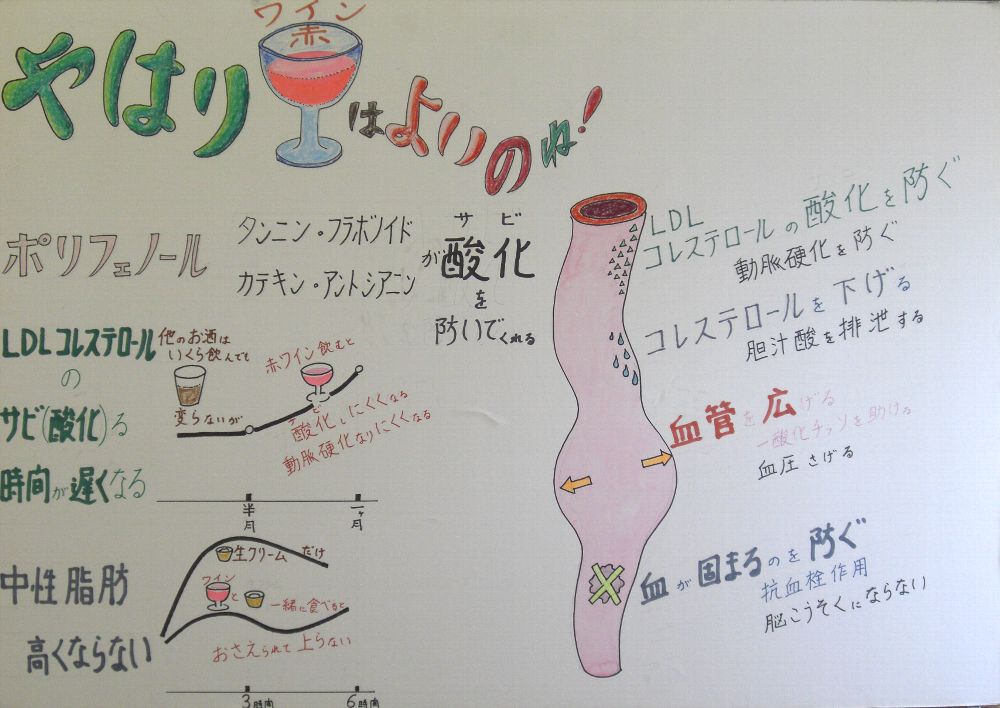 ワイン
赤
やはり
は
よいの
ね!
ポリフェノール
タンニン・フラボノイド
カテキン・アントシアニン
サビ
が酸化
を
防いでくれる
LDLコレステロール
の
サビ(酸化)る
時間が遅くなる
他のお酒は
いくら飲んでも
変らないが
赤ワイン飲むと
サビ
酸化しにくくなる
動脈硬化なりにくくなる
半月
一ヶ月
中性脂肪
高くならない
生クリームだけ
ワイン
と
一緒に食べると
おさえられて上らない
3時間
6時間
LDL
コレステロールの酸化を防ぐ
動脈硬化を防ぐ
コレステロールを下げる
胆汁酸を排泄する
血管を広げる
一酸化チッソを助ける
血圧さげる
血が固まるのを防ぐ
抗血栓作用
脳こうそくにならない